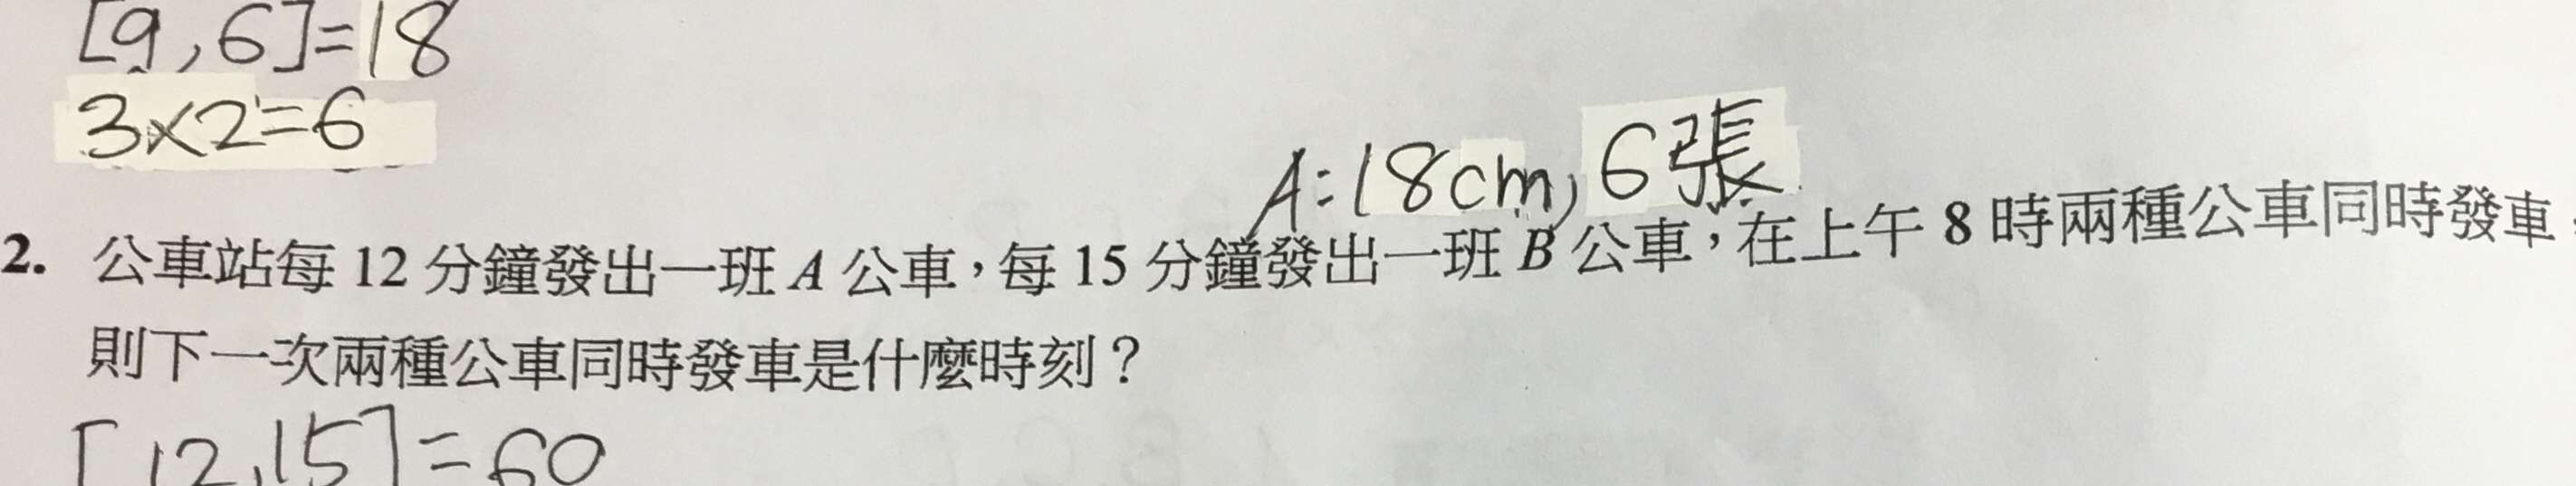 [9,6]=18
3×2=6
A:18cm,6張
2. 公車站每 12 分鐘發出一班 A 公車,每 15 分鐘發出一班 B 公車,在上午 8 時兩種公車同時發車,
則下一次兩種公車同時發車是什麼時刻?
[12,15]=60